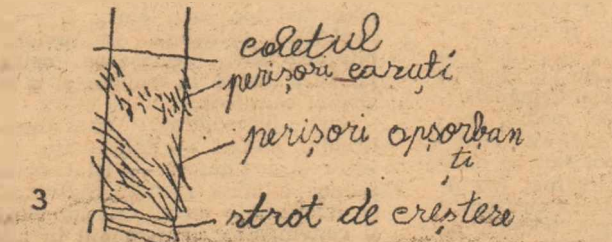 coletul
perișori cazuți
perișori apsorban
ti
3
strot de creștere